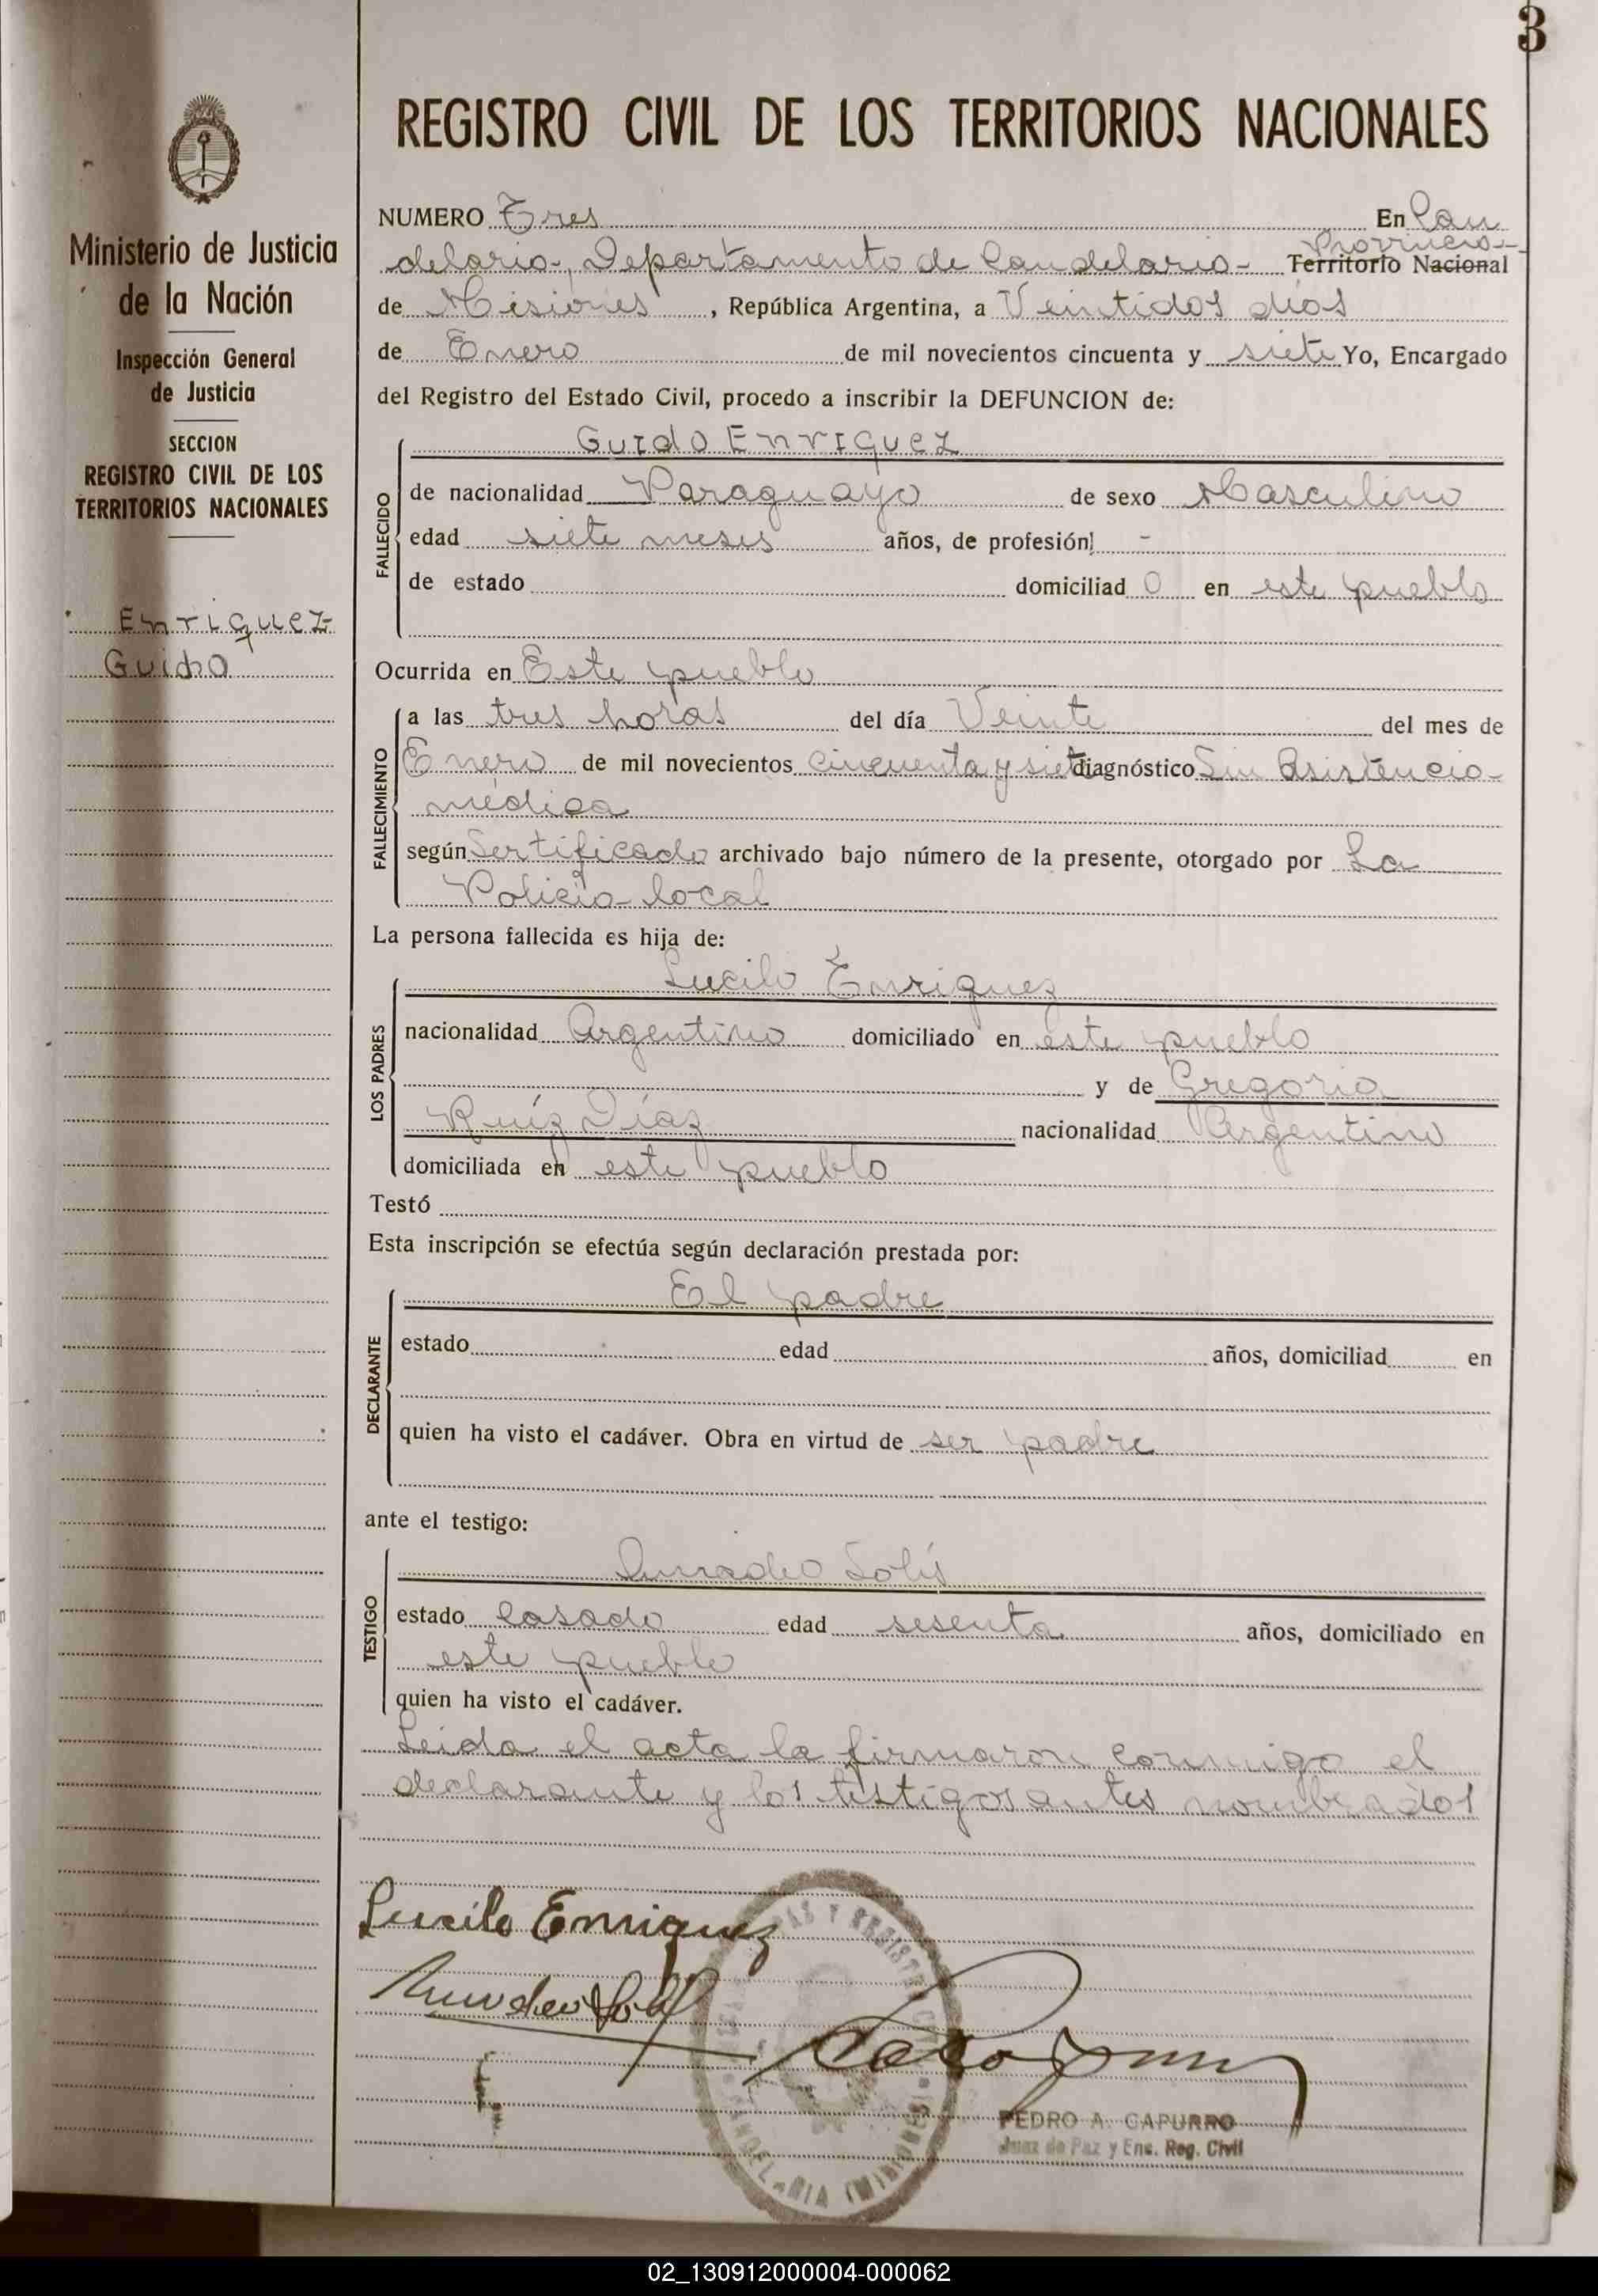 3
REGISTRO CIVIL DE LOS TERRITORIOS NACIONALES
Ministerio de Justicia
de la Nación
Inspección General
de Justicia
SECCION
REGISTRO CIVIL DE LOS
TERRITORIOS NACIONALES
Enriquez
Guido
NUMERO Tres En Can
delaria, Departamento de Candelaria Provincia Territorio Nacional
de Misiones, República Argentina, a Veintidos dias
de Enero de mil novecientos cincuenta y siete Yo, Encargado
del Registro del Estado Civil, procedo a inscribir la DEFUNCION de:
FALLECIDO
Guido Enriquez
de nacionalidad Paraguayo de sexo Masculino
edad siete meses años, de profesión -
de estado domiciliado en este pueblo
Ocurrida en Este pueblo
FALLECIMIENTO
a las tres horas del día Veinte del mes de
Enero de mil novecientos cincuenta y siete diagnóstico Sin Asistencia
médica
según Sertificado archivado bajo número de la presente, otorgado por La
Policia local
La persona fallecida es hija de:
LOS PADRES
Lucilo Enriquez
nacionalidad Argentino domiciliado en este pueblo
y de Gregoria
Ruíz Díaz nacionalidad Argentino
domiciliada en este pueblo
Testó
Esta inscripción se efectúa según declaración prestada por:
DECLARANTE
El padre
estado edad años, domiciliad en
quien ha visto el cadáver. Obra en virtud de ser padre
ante el testigo:
TESTIGO
Amadeo Solís
estado Casado edad sesenta años, domiciliado en
este pueblo
quien ha visto el cadáver.
Leida el acta la firmaron conmigo el
declarante y los testigos antes nombrados
Lucilo Enriquez
Amadeo Solis
PEDRO A. CAPURRO
Juez de Paz y Enc. Reg. Civil
CANDELARIA (MISIONES)
02_130912000004-000062